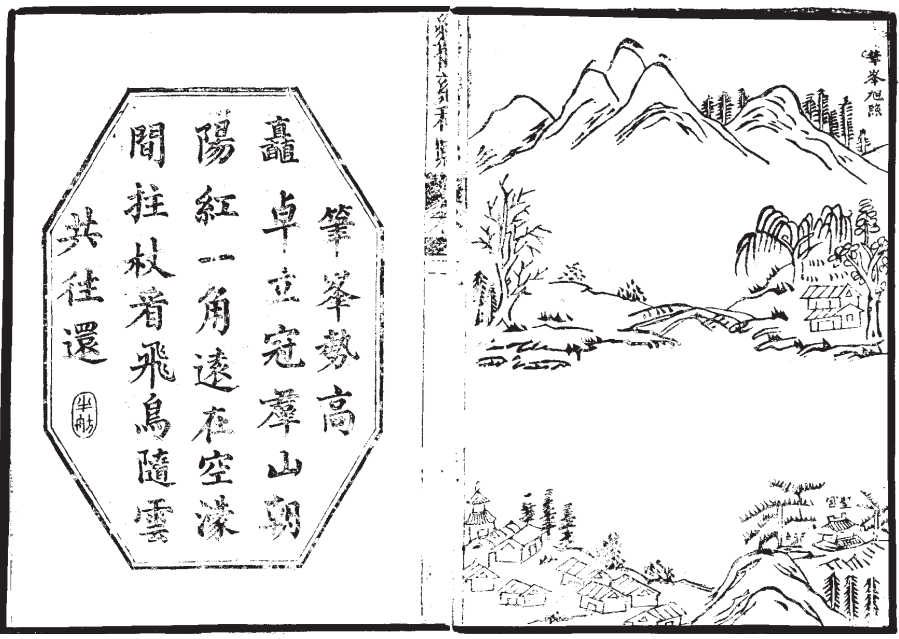 筆峯旭照
筆峯勢高
矗卓立冠羣山朝
陽紅一角遠在空濛
間拄杖看飛鳥隨雲
共往還
半舫